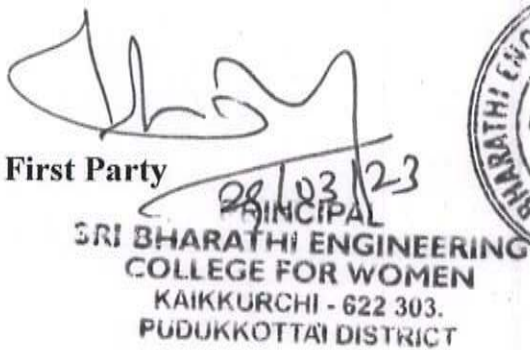 First Party
03/23
PRINCIPAL
SRI BHARATHI ENGINEERING
COLLEGE FOR WOMEN
KAIKKURCHI - 622 303.
PUDUKKOTTAI DISTRICT
BHARATHI ENG